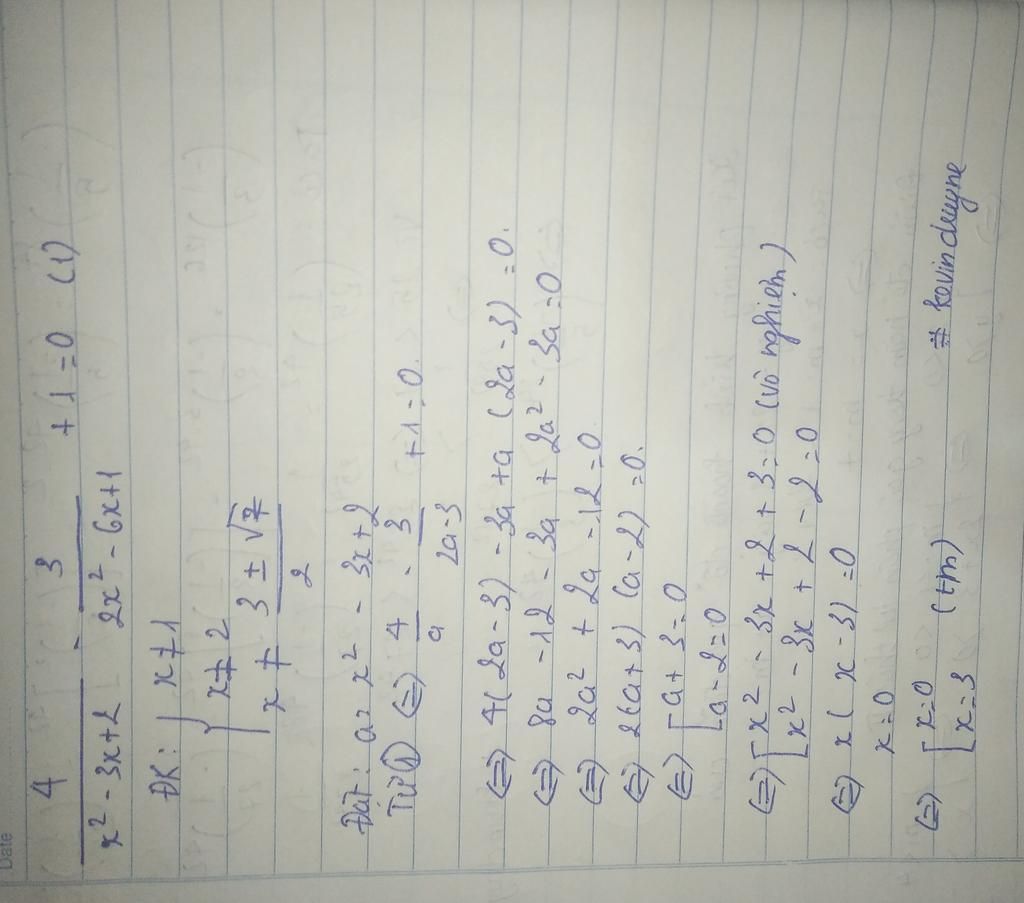 Date
4/(x² - 3x + 2) - 3/(2x² - 6x + 1) + 1 = 0 (1)
ĐK: { x ≠ 1
x ≠ 2
x ≠ (3 ± √7)/2
Đặt: a = x² - 3x + 2
Từ (1) (=) 4/a - 3/(2a-3) + 1 = 0.
(=) 4(2a - 3) - 3a + a (2a - 3) = 0.
(=) 8a - 12 - 3a + 2a² - 3a = 0
(=) 2a² + 2a - 12 = 0
(=) 2(a+3) (a-2) = 0.
(=) [ a + 3 = 0
a - 2 = 0
(=) [ x² - 3x + 2 + 3 = 0 (vô nghiệm)
x² - 3x + 2 - 2 = 0
(=) x ( x - 3) = 0
x = 0
(=) [ x = 0
x = 3 (tm) # kevindeuyne